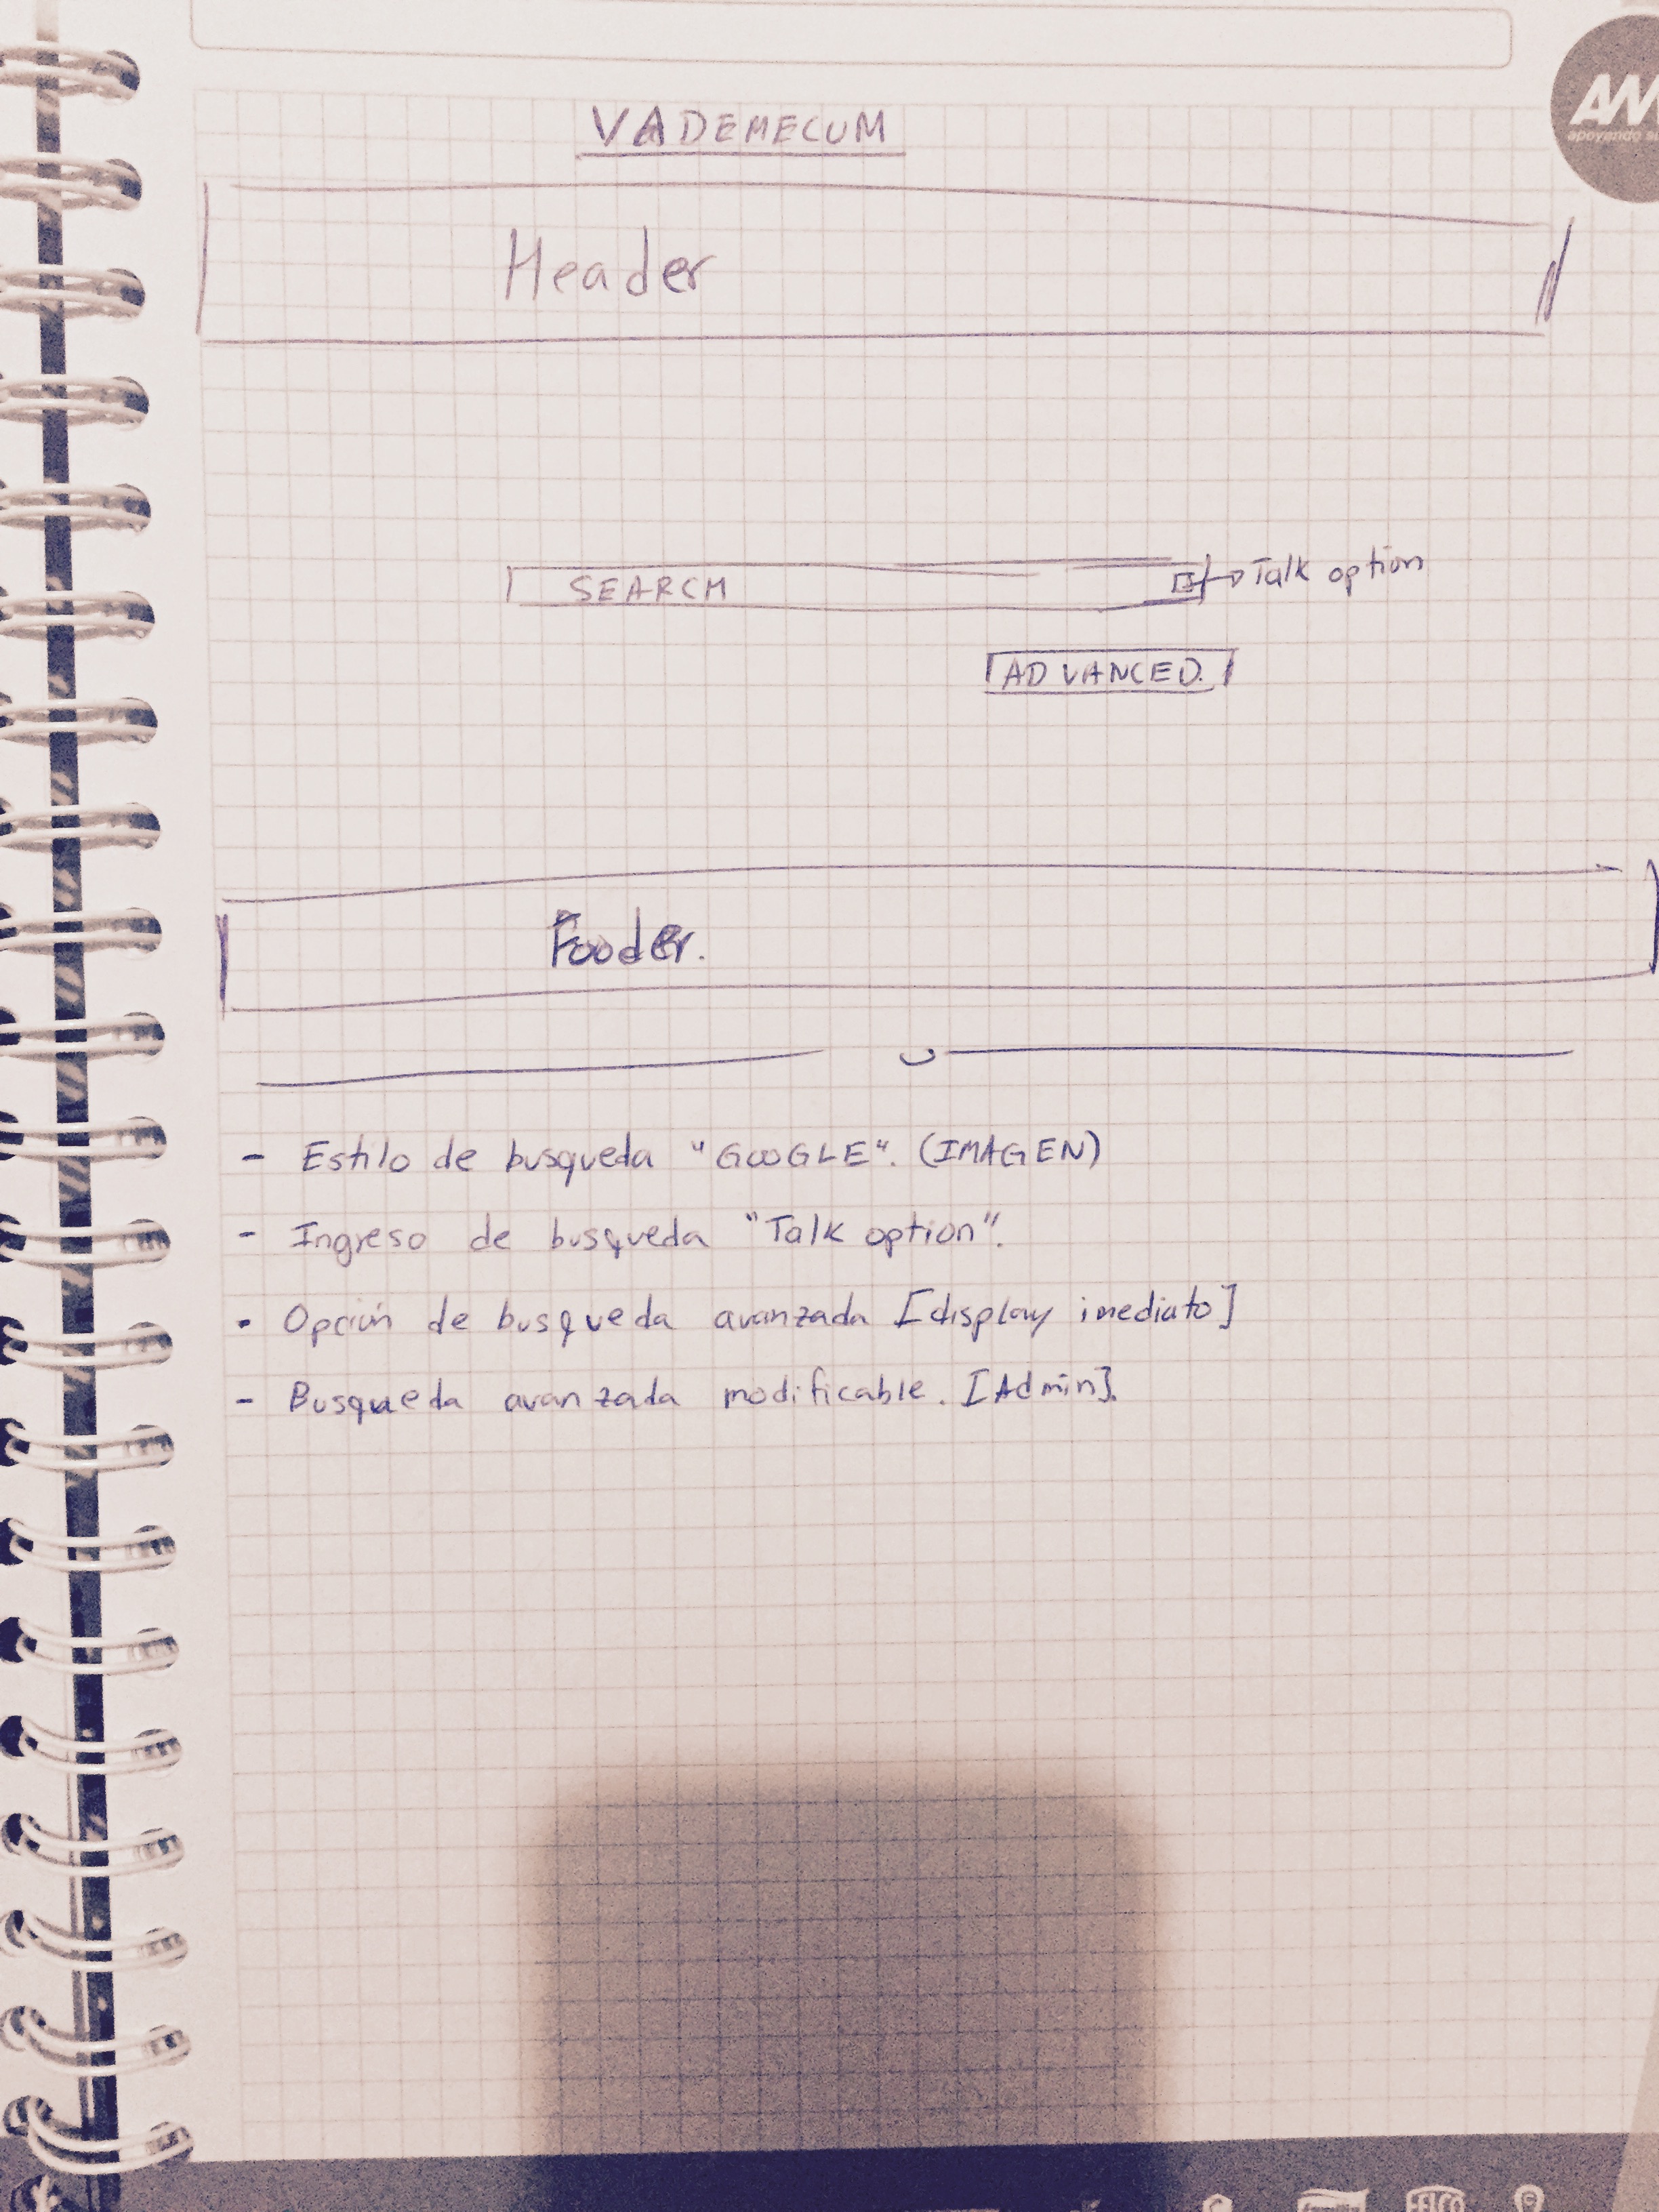 AN
apoyando su
VADEMECUM
Header
SEARCH
Talk option
ADVANCED.
Fooder.
- Estilo de busqueda "GOOGLE". (IMAGEN)
- Ingreso de busqueda "Talk option".
- Opción de busqueda avanzada [display imediato]
- Busqueda avanzada modificable. [Admin].
familia